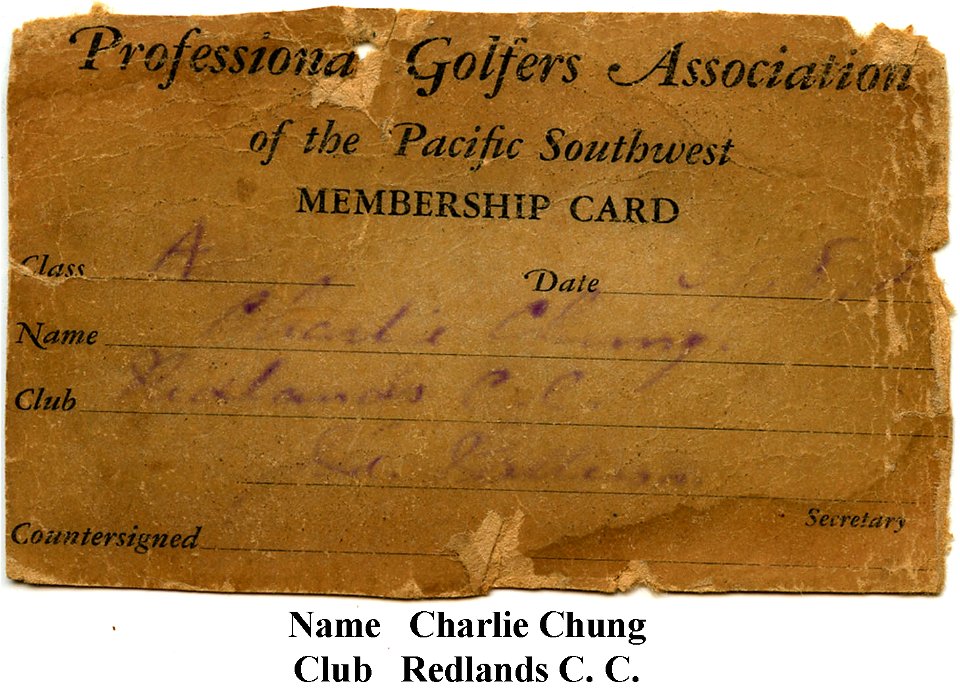 Professiona Golfers Association
of the Pacific Southwest
MEMBERSHIP CARD
Class A Date
Name Charlie Chung.
Club Redlands C. C.
Secretary
Countersigned
Name Charlie Chung
Club Redlands C. C.